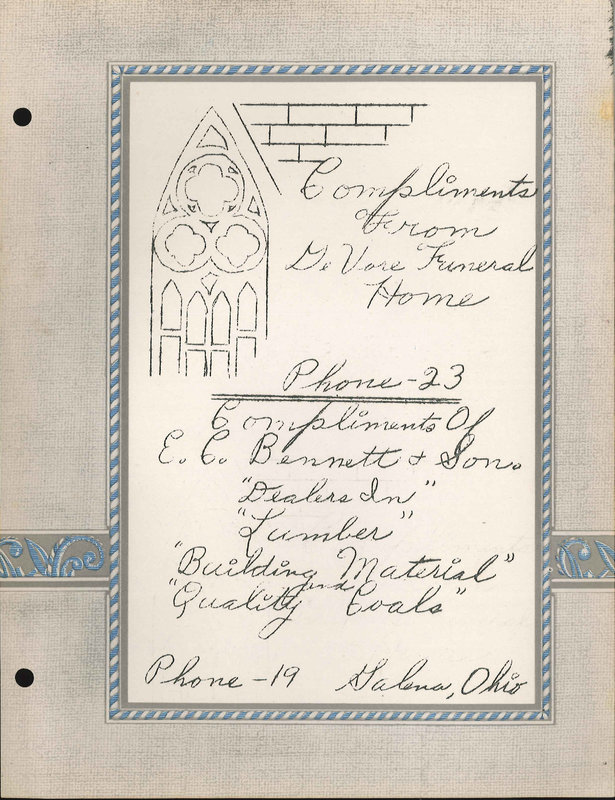 Compliments
From
De Vore Funeral
Home
Phone - 23
Compliments Of
E. C. Bennett & Son.
"Dealers In"
"Lumber"
"Building Material"
and
"Quality Coals"
Phone - 19 Galena, Ohio